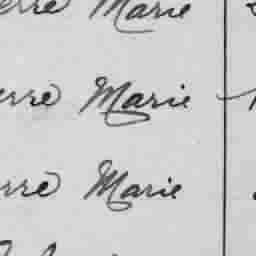 erre Marie
erre Marie
rre Marie